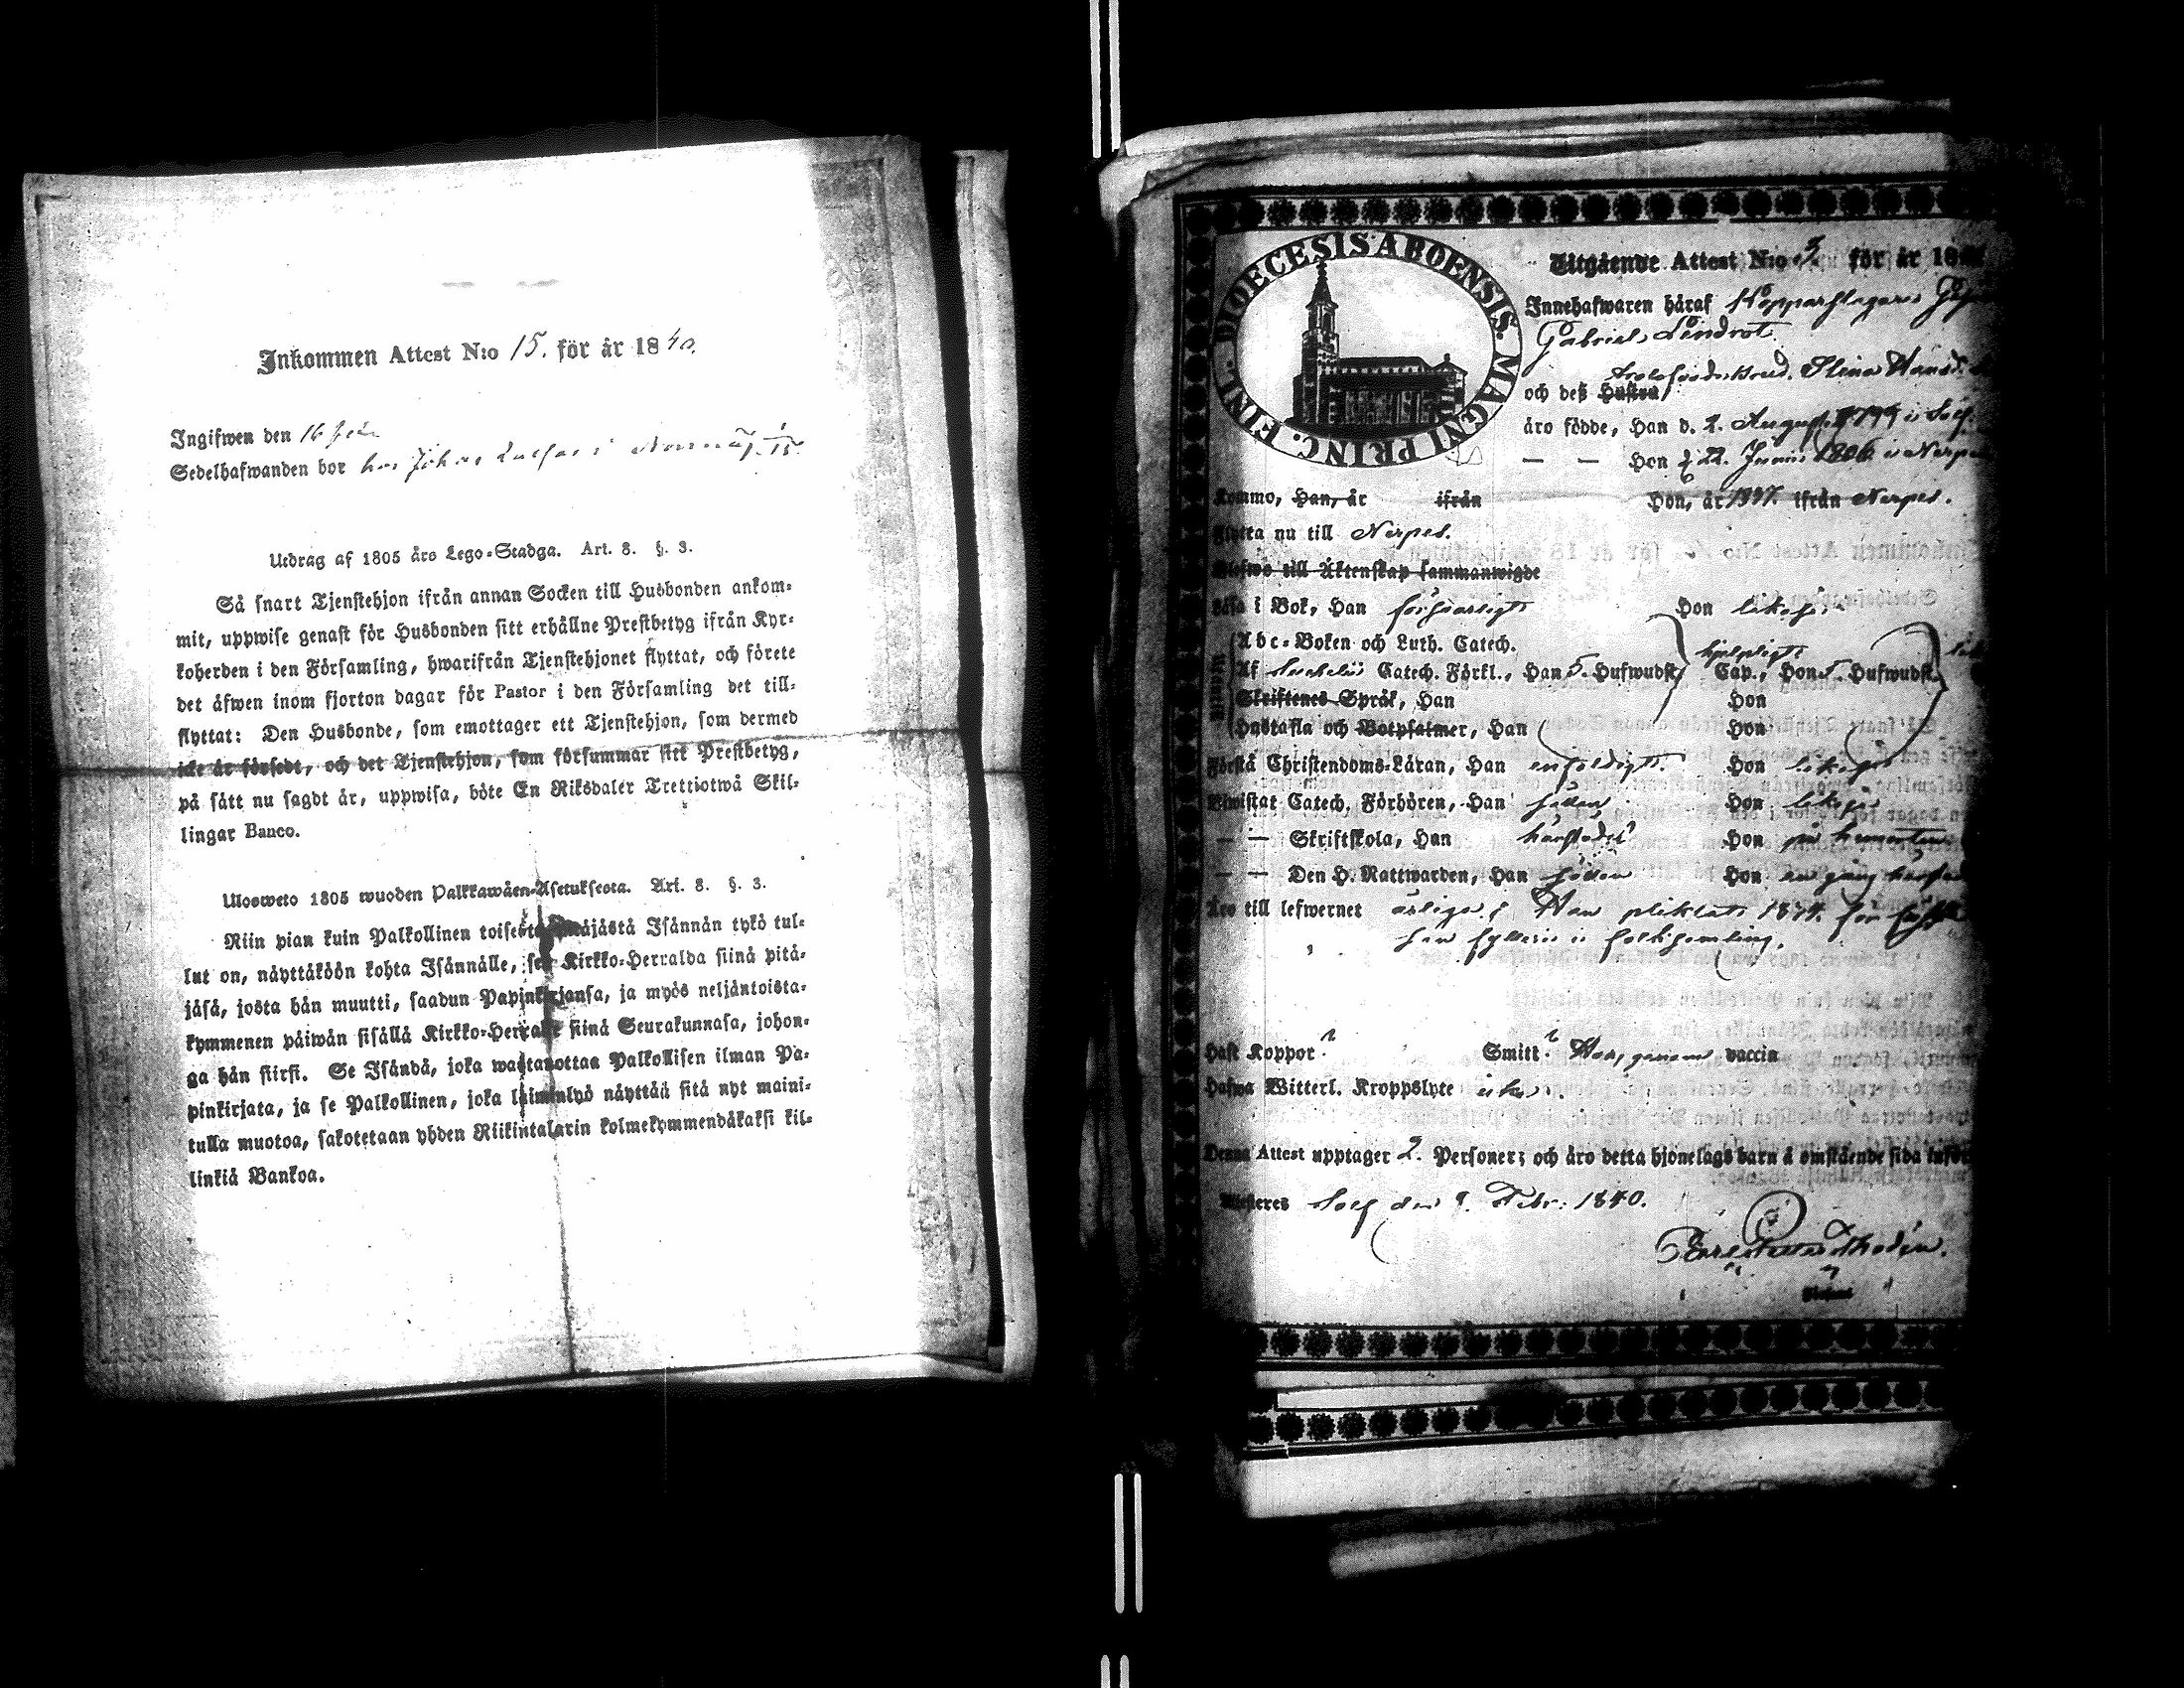 Inkommen Attest N:o 15. för år 1840.
Ingifwen den 16 Febr
Sedelhafwanden bor hos Johan
Utdrag af 1805 års Lego-Stadga. Art. 8. §. 3.
Så snart Tjenstehjon ifrån annan Socken till Husbonden ankom-
mit, uppwise genast för Husbonden sitt erhållne Prestbetyg ifrån Kyr-
koherden i den Församling, hwarifrån Tjenstehjonet flyttat, och förete
det åfwen inom fjorton dagar för Pastor i den Församling det till-
flyttat: Den Husbonde, som emottager ett Tjenstehjon, som dermed
icke är försedt, och det Tjenstehjon, som försummar sitt Prestbetyg,
på sätt nu sagdt är, uppwisa, böte En Riksdaler Trettiotwå Skil-
lingar Banco.
Ulosweto 1805 wuoden Palkkawäen-Asetuksesta. Art. 8. §. 3.
Niin pian kuin Palkollinen toisesta Pitäjästä Isännän tykö tul-
lut on, näyttäköön kohta Isännälle, sen Kirkko-Herralda siinä pitä-
jäsä, josta hän muutti, saadun Papinkirjansa, ja myös neljäntoista-
kymmenen päiwän sisällä Kirkko-Herralle siinä Seurakunnasa, johon-
ga hän siirsi. Se Isändä, joka wastanottaa Palkollisen ilman Pa-
pinkirjata, ja se Palkollinen, joka laiminlyö näyttää sitä nyt maini-
tulla muotoa, sakotetaan yhden Riikintalarin kolmekymmendäkaksi kil-
linkiä Bankoa.
DIOECESIS ABOENSIS. MAGNI PRINC. FINL.
Utgående Attest N:o 3 för år 18
Innehafwaren häraf Kopparslagare
Gabriel Lindrot
och deß Hustru Stina Hansd.
äro födde, Han d. 2. August. 1799 i Solf
— — Hon d. 22. Junii 1806 i Nerpes
Kommo, Han, år ifrån Hon, år 1837. ifrån Nerpes.
Flytta nu till Nerpes.
Blefwo till Äktenskap sammanwigde
Läsa i Bok, Han försvarligt Hon likaså
Abc-Boken och Luth. Catech.
Af Svebelii Catech. Förkl., Han 5. Hufwudst. Cap., Hon 5. Hufwudst.
hjelpligt
Skriftenes Språk, Han Hon
Hustafla och Botpsalmer, Han Hon
Förstå Christendoms-Läran, Han enfaldigt. Hon likaså
Bewistat Catech. Förhören, Han sällan Hon likaså
— — Skriftskola, Han härstädes Hon på hemorten
— — Den H. Nattwarden, Han sällan Hon en gång härstädes
Äro till lefwernet ärliga; Han pliktat 18 för
fylleri i folksamling.
Haft Koppor? Smitt? Hon, genom vaccin
Hafwa Witterl. Kroppslyte icke.
Denna Attest upptager 2. Personer; och äro detta hjonelags barn å omstående sida införde
Attesteres Solf den 9. Febr: 1840.